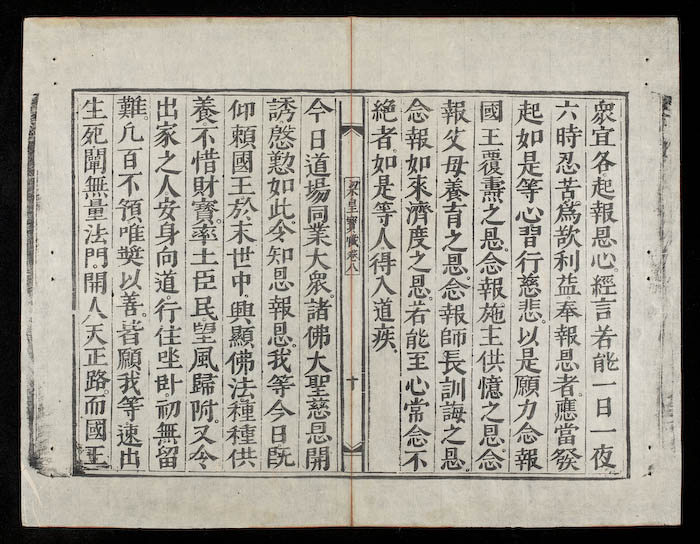 衆宜各起報恩心。經言若能一日一夜
六時忍苦爲欲利益奉報恩者。應當發
起如是等心習行慈悲。以是願力念報
國王覆燾之恩。念報施主供憶之恩。念
報父母養育之恩。念報師長訓誨之恩。
念報如來濟度之恩。若能至心常念不
絕者。如是等人得入道疾。
梁皇寶懺卷八
十
今日道場同業大衆。諸佛大聖慈恩開
誘。慇懃如此。令知恩報恩。我等今日旣
仰賴國王於末世中。興顯佛法種種供
養。不惜財寶。率土臣民。望風歸附。又令
出家之人安身向道。行住坐臥。初無留
難。凡百不預。唯獎以善。皆願我等速出
生死。闡無量法門。開人天正路。而國王